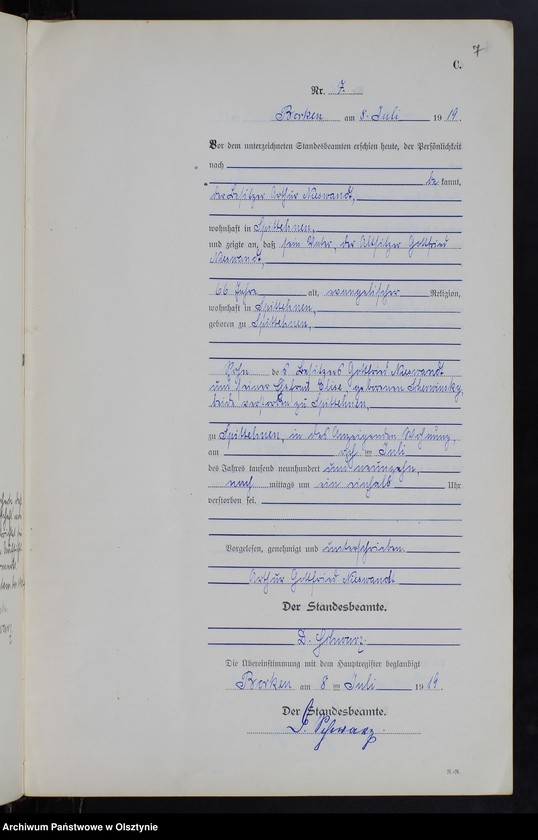 7
C.
Nr. 7.
Borken am 8. Juli 1919.
Vor dem unterzeichneten Standesbeamten erschien heute, der Persönlichkeit
nach
be kannt,
der Besitzer Arthur Nieswandt,
wohnhaft in Spittehnen,
und zeigte an, daß sein Vater, der Altsitzer Gottfried
Nieswandt,
66 Jahre alt, evangelischer Religion,
wohnhaft in Spittehnen,
geboren zu Spittehnen,
Sohn des Besitzers Gottfried Nieswandt
und seiner Ehefrau Elise, geborenen
beide verstorben zu Spittehnen,
zu Spittehnen, in des Anzeigenden Wohnung,
am Juli
des Jahres tausend neunhundert und neunzehn,
nach mittags um ein einhalb Uhr
verstorben sei.
Vorgelesen, genehmigt und unterschrieben
Arthur Gottfried Nieswandt
Der Standesbeamte.
D. Schwarz.
Die Übereinstimmung mit dem Hauptregister beglaubigt
Borken am 8 ten Juli 1919.
Der Standesbeamte.
Schwarz.
Archiwum Państwowe w Olsztynie